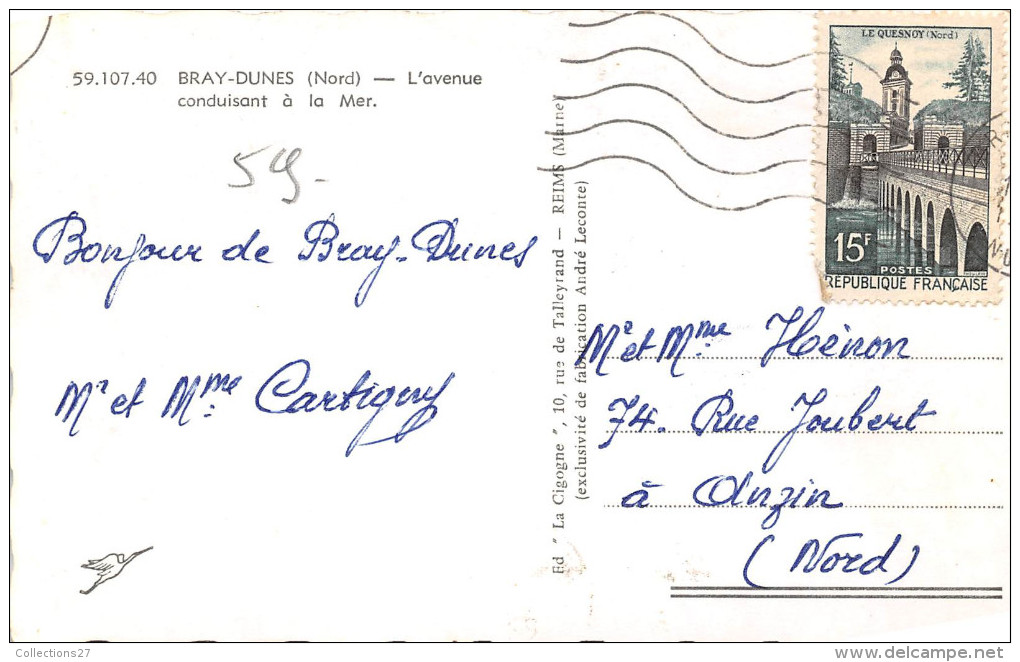 59.107.40 BRAY-DUNES (Nord) — L'avenue
conduisant à la Mer.
59-
Bonjour de Bray-Dunes
Mr et Mme Cartigny
Ed " La Cigogne ", 10, rue de Talleyrand — REIMS (Marne)
(exclusivité de fabrication André Leconte)
LE QUESNOY (Nord)
15F
POSTES
RÉPUBLIQUE FRANÇAISE
Mr et Mme Hénon
74. Rue Joubert
à Anzin
(Nord)
Collections27
delcampe.net